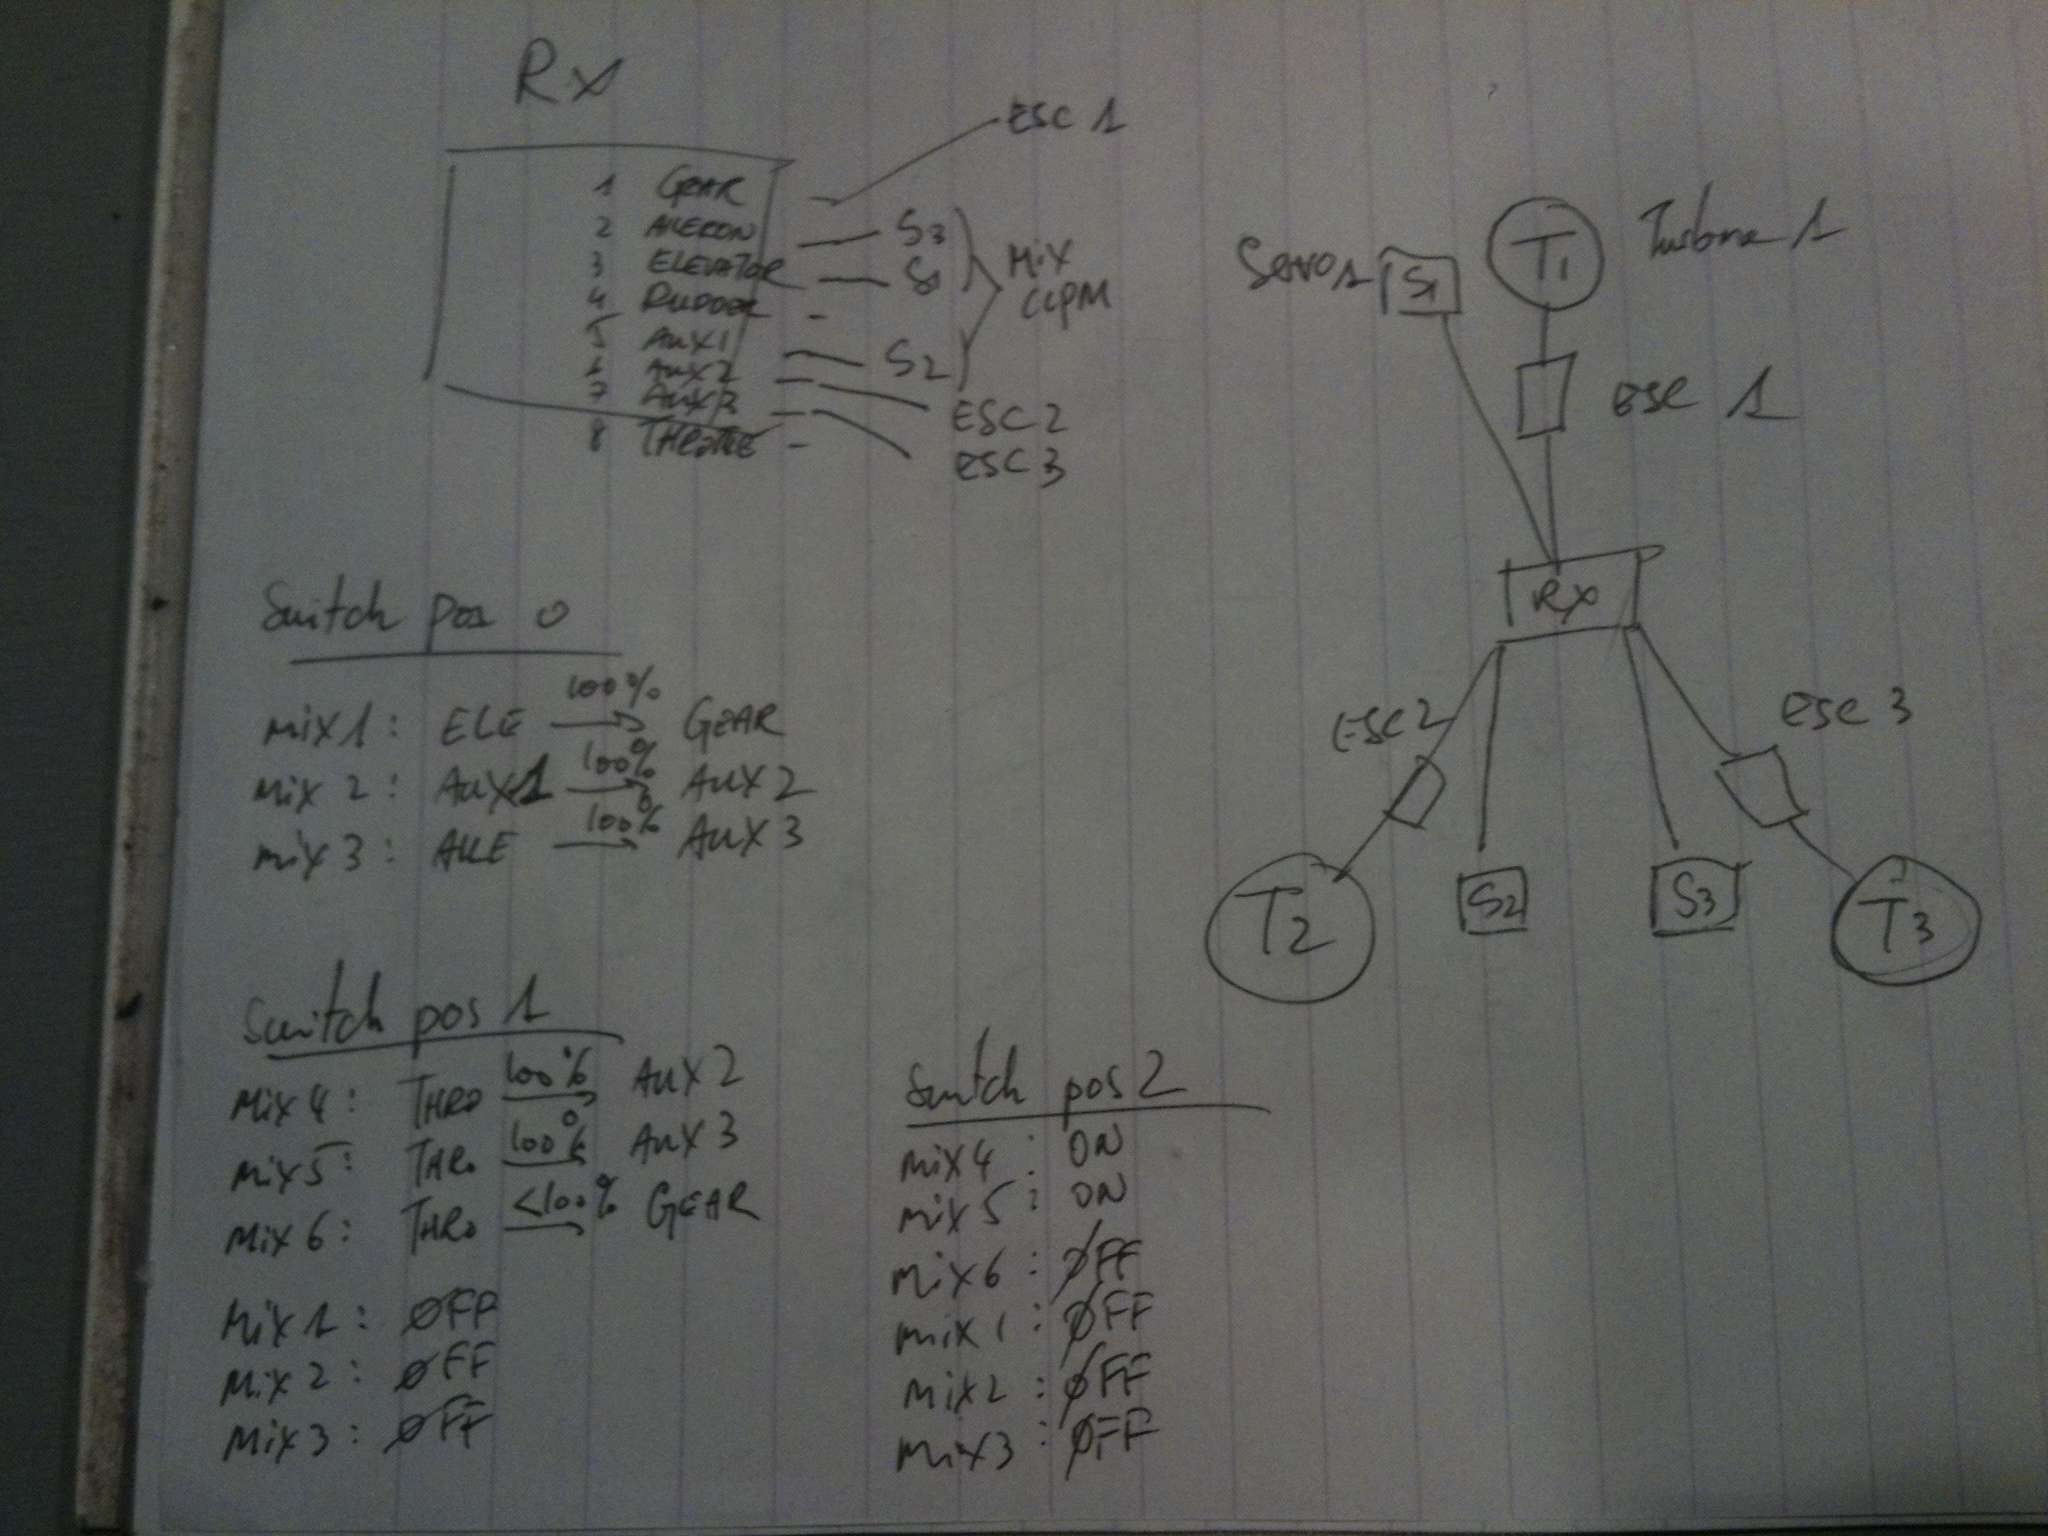 Rx
ESC 1
1 GEAR
2 AILERON S3
3 ELEVATOR S1
MIX
CCPM
4 RUDDER -
5 AUX1 S2
6 AUX2 ESC 2
7 AUX3 ESC 3
8 THROTTLE -
Servo 1 S1 T1 Turbine 1
ESC 1
RX
ESC2 ESC 3
T2 S2 S3 T3
Switch pos 0
Mix1: ELE 100% GEAR
Mix 2: AUX1 100% AUX 2
Mix 3: AILE 100% AUX 3
Switch pos 1
Mix4: THRO 100% AUX 2
Mix5: THRO 100% AUX 3
Mix 6: THRO <100% GEAR
Mix 1: OFF
Mix 2: OFF
Mix 3: OFF
Switch pos 2
Mix4: ON
Mix5: ON
Mix6: OFF
Mix1: OFF
Mix2: OFF
Mix3: OFF